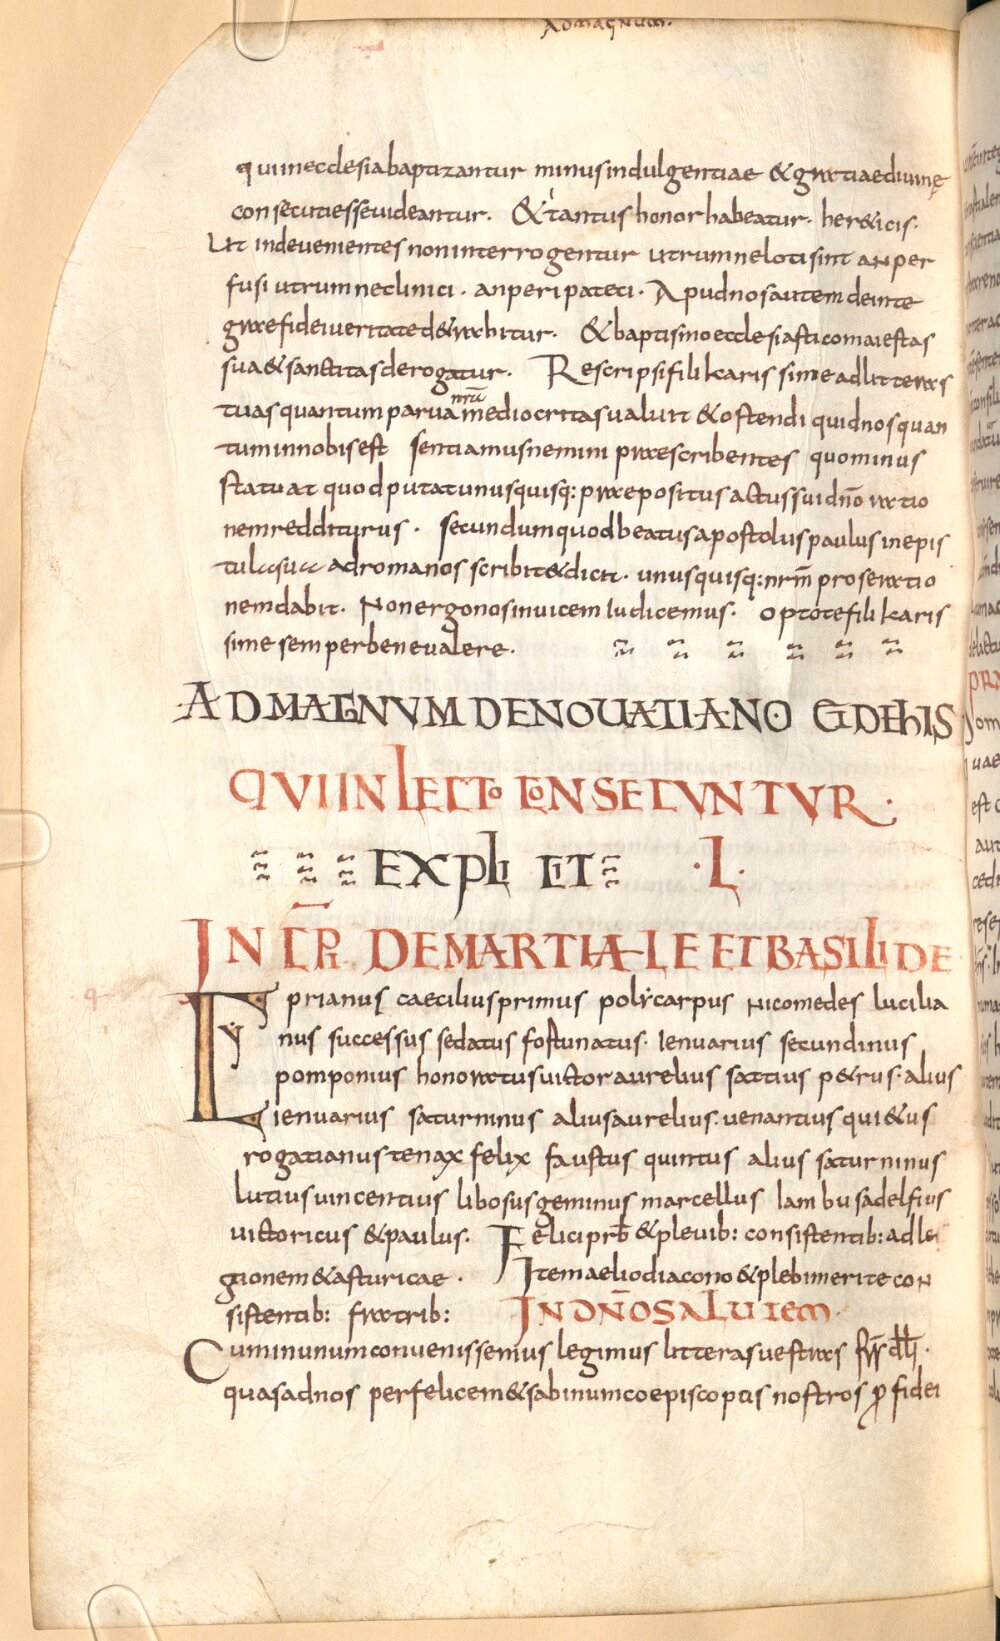 ADMAGNUM.
qui inecclesiabaptizantur minusindulgentiae &gratiaedivinę
consecutiessevideantur. &tantushonorhabeatur. her&icis.
Ut indevenientes noninterrogentur utrumnelotisint anper
fusi utrumneclinici. anperipateci. Apudnosautem deinte
graefideiveritated&rahitur. &baptismoecclesiasticomaiestas
sua&sanctitasderogatur. Rescripsifilikarissimeadlitteras
tuasquantumparva nr̄a mediocritasvaluit &ostendi quidnosquan
tuminnobisest sentiamusnemini praescribentes quominus
statuat quodputatunusquisq: praepositusactussuidn̄o ratio
nemredditurus. secundumquodbeatusapostoluspaulusinepis
tulasua adromanos scribit&dicit. unusquisq:nr̄m proseratio
nemdabit. Nonergonosinvicemiudicemus. optotefilikaris
simesemperbenevalere.
ADMAGNVM DENOUATIANO ET DEHIS
QVIINLECTO CONSECVNTVR:
EXPLICIT ·L·
INCP̄R DEMARTIALE ET BASILIDE
Cyprianus caeciliusprimus polycarpus nicomedes lucilia
nus successus sedatus fortunatus. ienuarius secundinus
pomponius honoratusvictoraurelius sattius p&rus.alius
ienuarius saturninus aliusaurelius.venantiusqui&us
rogatianustenax felix faustus quintus alius saturninus
lutiusvincentius libosusgeminus marcellus iambusadelfius
victoricus &paulus. Feliciprb̄ &plevib: consistentib:adle
gionem&asturicae. Itemaeliodiacono&plebimeritecon
sistentib: fratrib: INDN̄OSALUTEM.
Cuminunumconvenissemus legimus litterasvestras fr̄s dll̄.
quasadnos perfelicem&sabinumcoepiscopus nostros ꝓ fidei